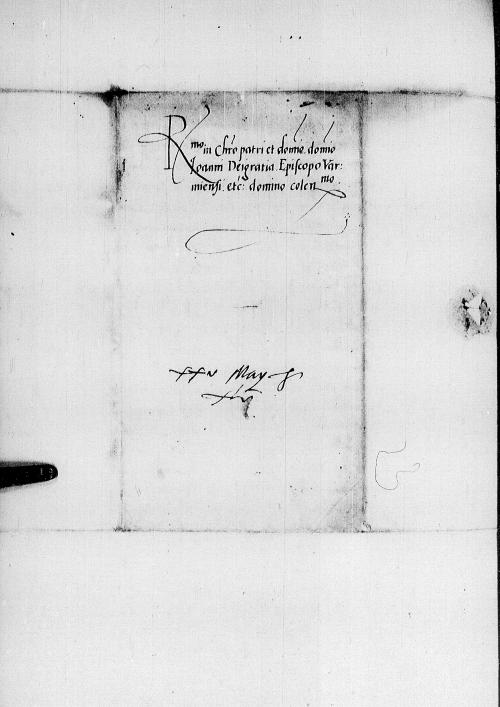 Rmo in Chro patri et domino domino
Joanni Dei gratia Episcopo Var:
miensi etc: domino colenmo
May